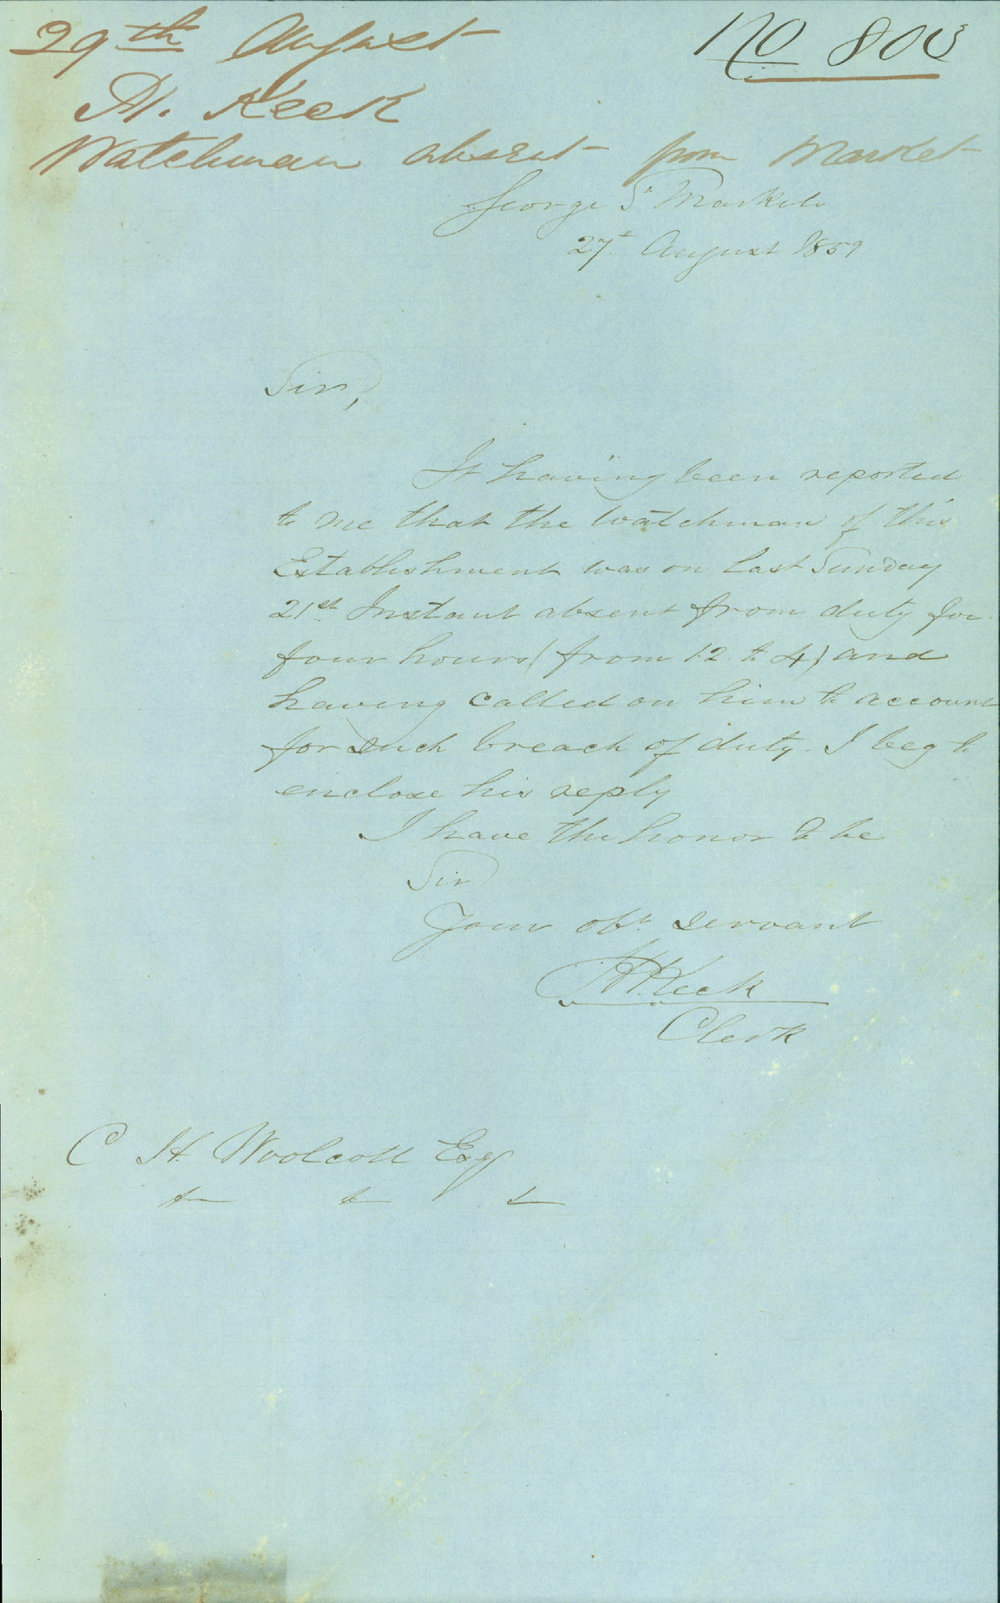 29th August
No 803
H. Keck
Watchman absent from Market
George St Markets
27th August 1859
Sir,
It having been reported
to me that the Watchman of this
Establishment was on last Sunday
21st Instant absent from duty for
four hours (from 12 to 4) and
having called on him to account
for such breach of duty. I beg to
enclose his reply
I have the honor to be
Sir
Your obt servant
H Keck
Clerk
C H Woolcott Esq